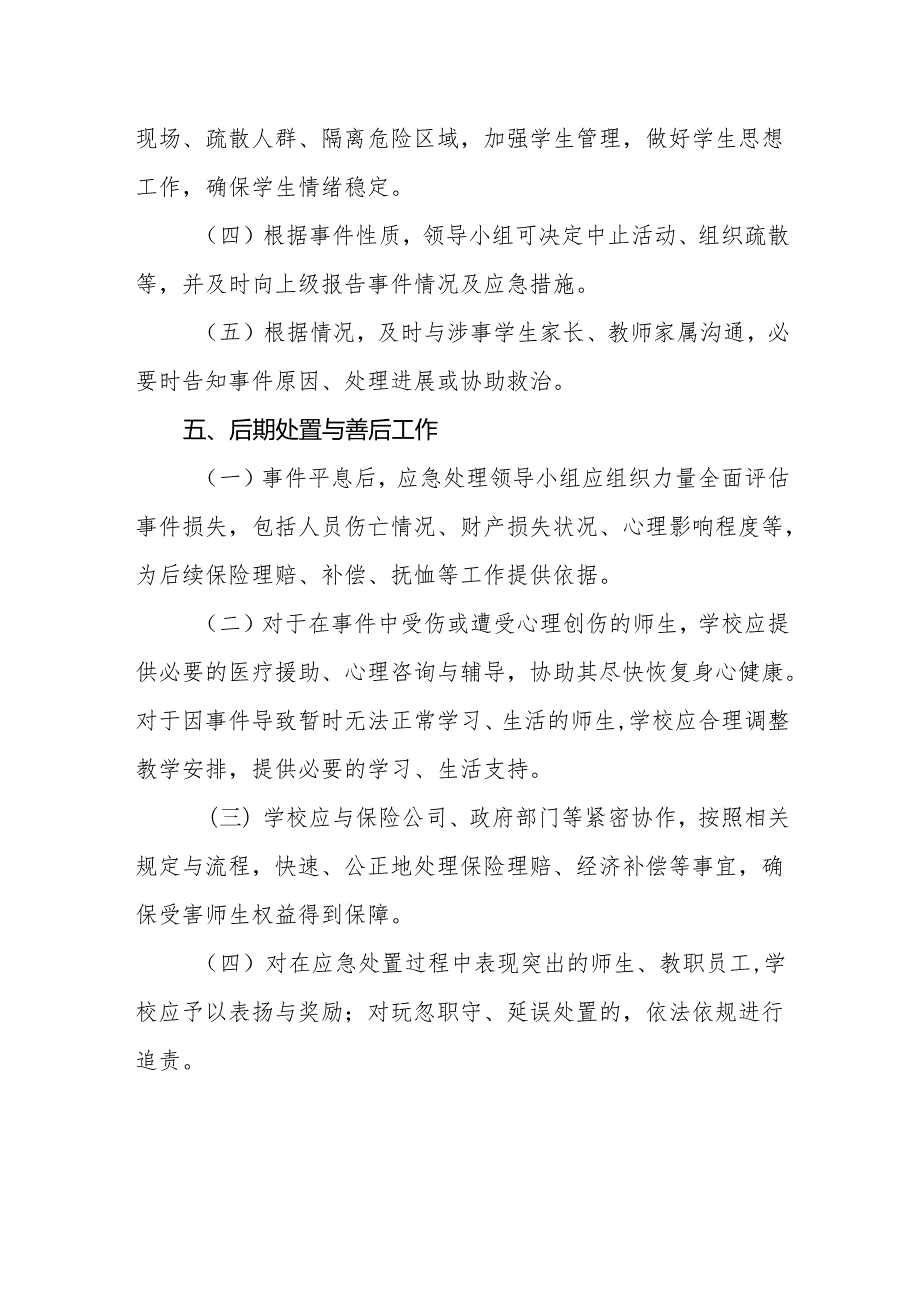 现场、疏散人群、隔离危险区域，加强学生管理，做好学生思想
工作，确保学生情绪稳定。
（四）根据事件性质，领导小组可决定中止活动、组织疏散
等，并及时向上级报告事件情况及应急措施。
（五）根据情况，及时与涉事学生家长、教师家属沟通，必
要时告知事件原因、处理进展或协助救治。
五、后期处置与善后工作
（一）事件平息后，应急处理领导小组应组织力量全面评估
事件损失，包括人员伤亡情况、财产损失状况、心理影响程度等，
为后续保险理赔、补偿、抚恤等工作提供依据。
（二）对于在事件中受伤或遭受心理创伤的师生，学校应提
供必要的医疗援助、心理咨询与辅导，协助其尽快恢复身心健康。
对于因事件导致暂时无法正常学习、生活的师生,学校应合理调整
教学安排，提供必要的学习、生活支持。
(三) 学校应与保险公司、政府部门等紧密协作，按照相关
规定与流程，快速、公正地处理保险理赔、经济补偿等事宜，确
保受害师生权益得到保障。
（四）对在应急处置过程中表现突出的师生、教职员工,学
校应予以表扬与奖励；对玩忽职守、延误处置的，依法依规进行
追责。